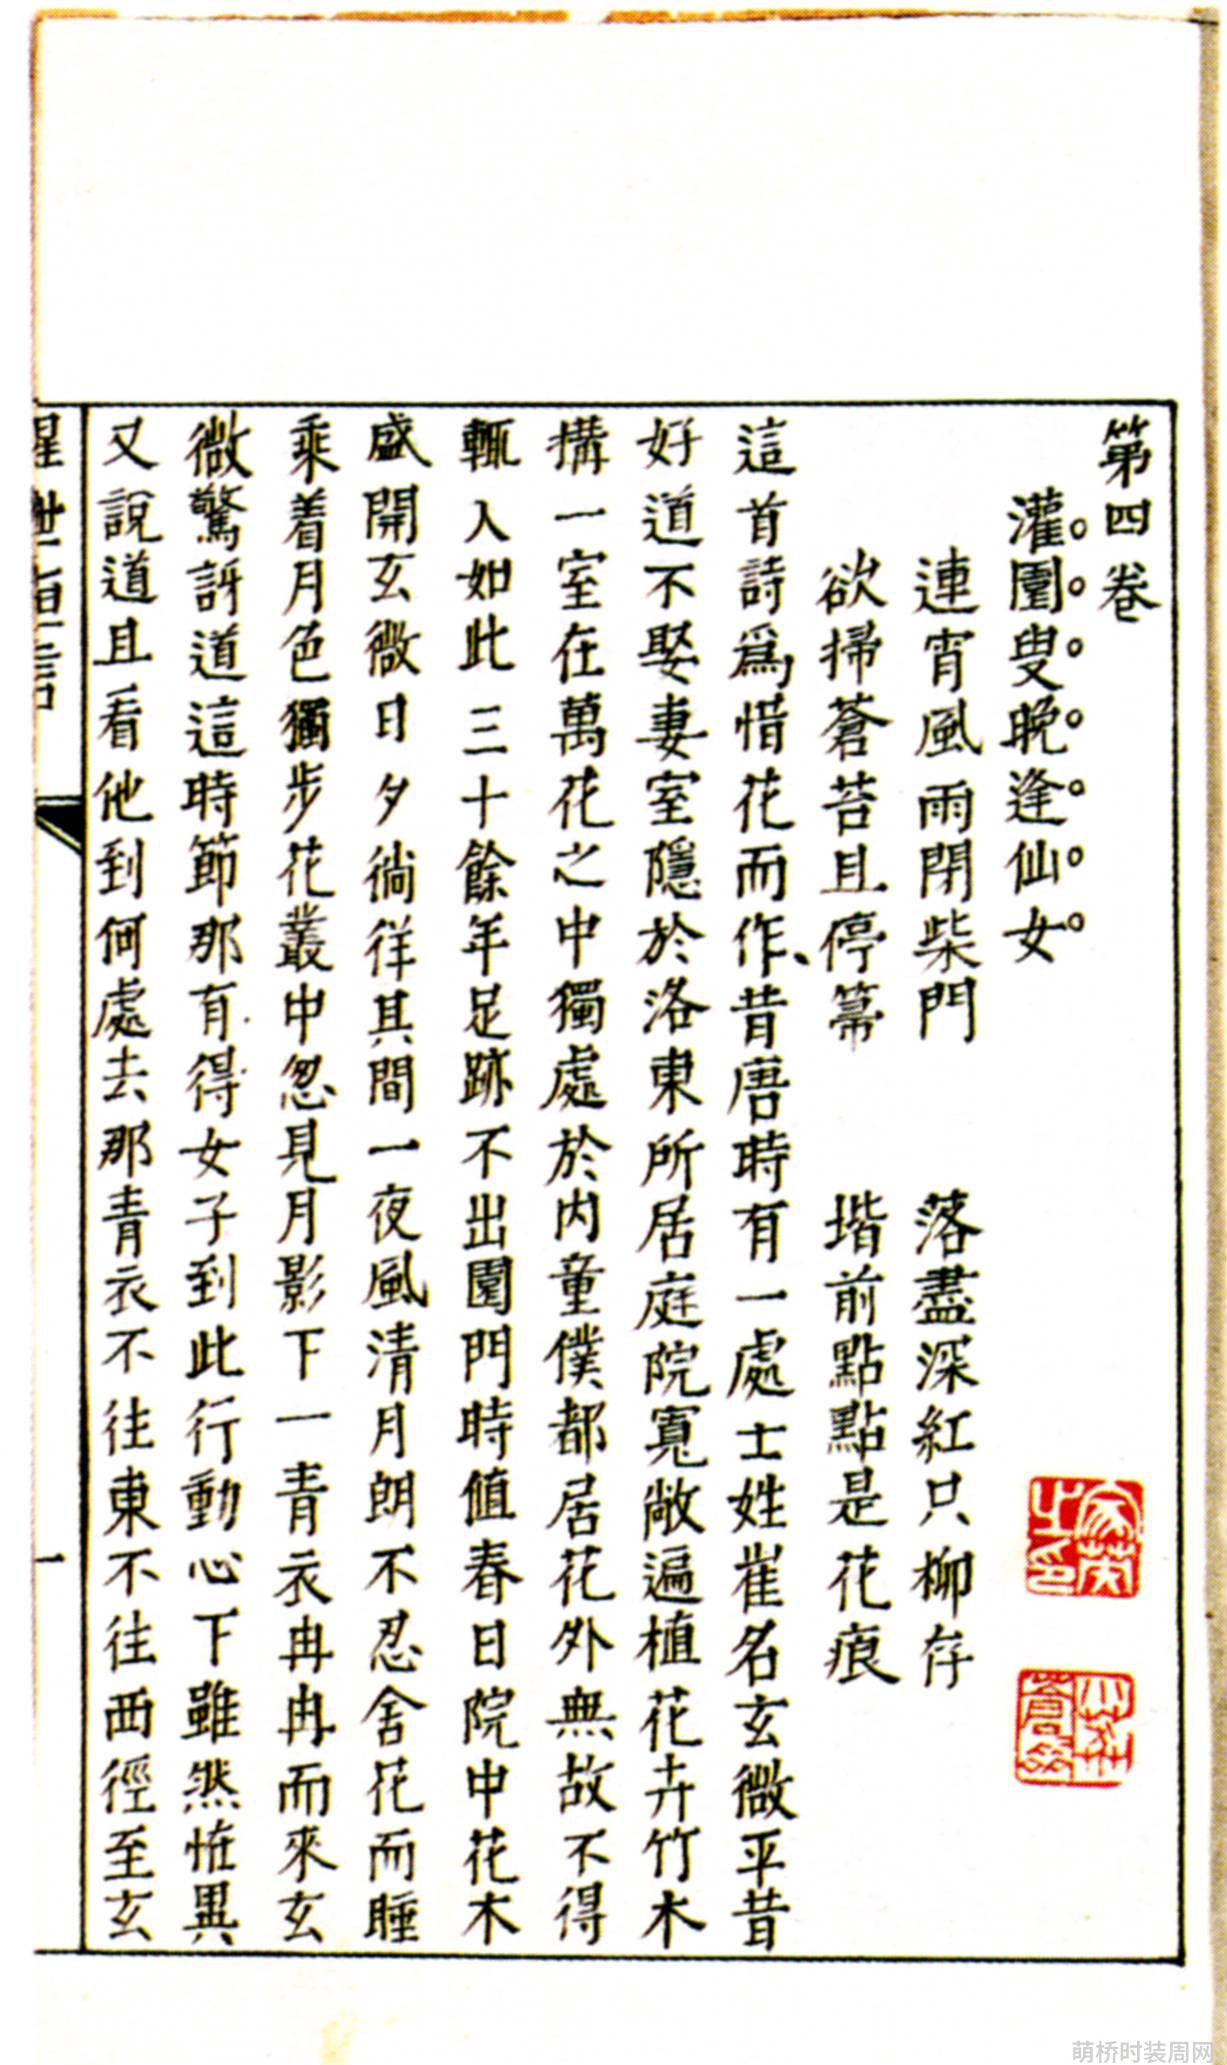 第四卷
灌園叟晚逢仙女
連宵風雨閉柴門　落盡深紅只柳存
欲掃蒼苔且停箒　堦前點點是花痕
這首詩爲惜花而作昔唐時有一處士姓崔名玄微平昔
好道不娶妻室隱於洛東所居庭院寬敞遍植花卉竹木
搆一室在萬花之中獨處於内童僕都居花外無故不得
輒入如此三十餘年足跡不出園門時值春日院中花木
盛開玄微日夕徜徉其間一夜風清月朗不忍舍花而睡
乘着月色獨步花叢中忽見月影下一青衣冉冉而來玄
微驚訝道這時節那有得女子到此行動心下雖然恠異
又說道且看他到何處去那青衣不往東不往西徑至玄
醒世恒言
一
萌桥时装周网